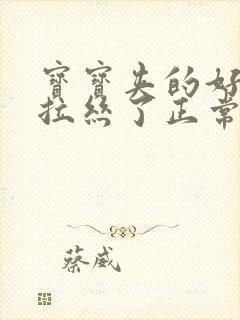 寶寶夹的好
拉絲了正常
蔡威